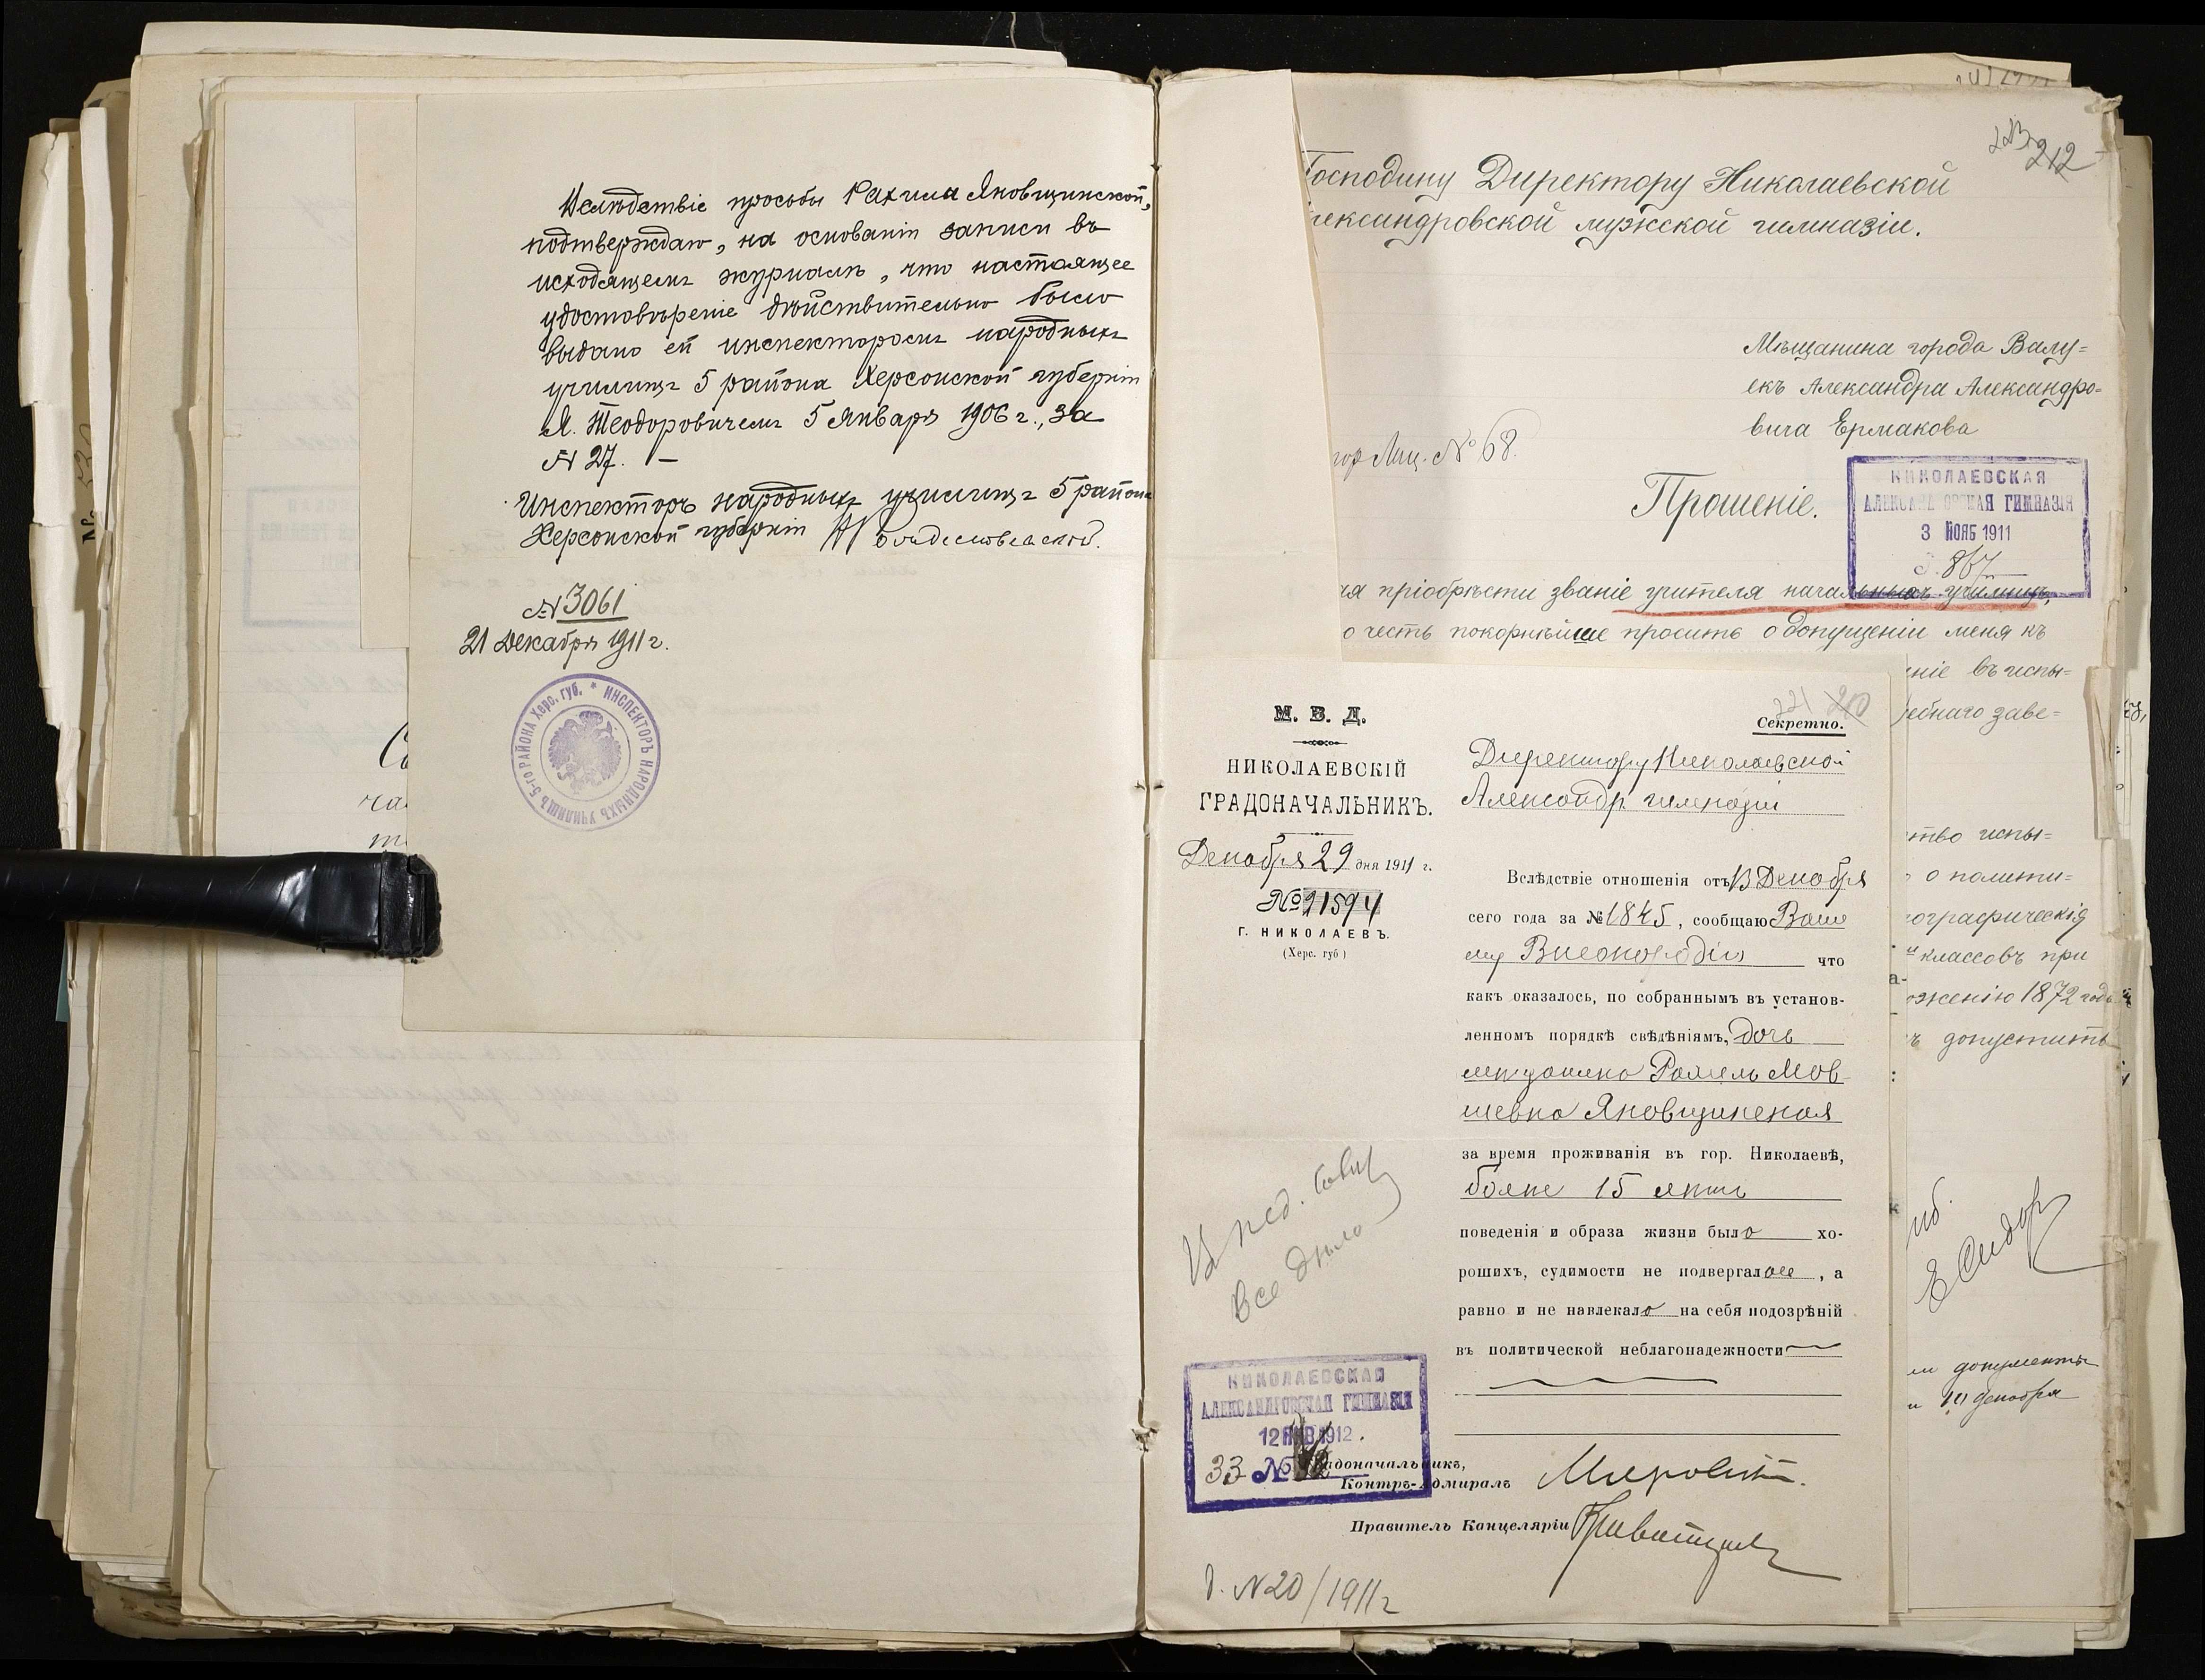 Вслѣдствіе просьбы Рахили Яновщинской,
подтверждаю, на основаніи записи въ
исходящемъ журналѣ, что настоящее
удостовѣреніе дѣйствительно было
выдано ей инспекторомъ народныхъ
училищъ 5 района Херсонской губерніи
А. Теодоровичемъ 5 Января 1906 г., за
№ 27. —
Инспекторъ народныхъ училищъ 5 района
Херсонской губерніи
№ 3061
21 Декабря 1911 г.
ИНСПЕКТОРЪ НАРОДНЫХЪ УЧИЛИЩЪ 5-го РАЙОНА Херс. губ. *
212
Господину Директору Николаевской
лександровской мужской гимназіи.
Мѣщанина города Валу=
екъ Александра Александро=
вича Ермакова
№ 68.
Прошеніе.
НИКОЛАЕВСКАЯ
АЛЕКСАНДРОВСКАЯ ГИМНАЗІЯ
3 НОЯБ 1911
867
ая пріобрѣсти званіе учителя начальныхъ училищъ,
ю честь покорнѣйше просить о допущеніи меня къ
ніе въ испы=
ебнаго заве=
ство испы=
о полити=
ографическія
классовъ при
оженію 1872 года
ъ допустить
документы
14 декабря
221 210
Секретно.
М. В. Д.
НИКОЛАЕВСКІЙ
ГРАДОНАЧАЛЬНИКЪ.
Декабря 29 дня 1911 г.
№ 21594
Г. НИКОЛАЕВЪ.
(Херс. губ)
Директору Николаевской
Александр гимназіи
Вслѣдствіе отношенія отъ 13 Декабря
сего года за № 1845, сообщаю Ваше
му Высокородію что
какъ оказалось, по собраннымъ въ установ-
ленномъ порядкѣ свѣдѣніямъ, дочь
мѣщанина Рахиль Мов
шевна Яновщинская
за время проживанія въ гор. Николаевѣ,
болѣе 15 лѣтъ
поведенія и образа жизни была хо-
рошихъ, судимости не подвергалась, а
равно и не навлекала на себя подозрѣній
въ политической неблагонадежности
Къ пед. совѣту
все дѣло
НИКОЛАЕВСКАЯ
АЛЕКСАНДРОВСКАЯ ГИМНАЗІЯ
12 ЯНВ 1912.
33 №
Градоначальникъ,
Контръ-Адмиралъ
Правитель Канцеляріи
д. № 20/1911 г